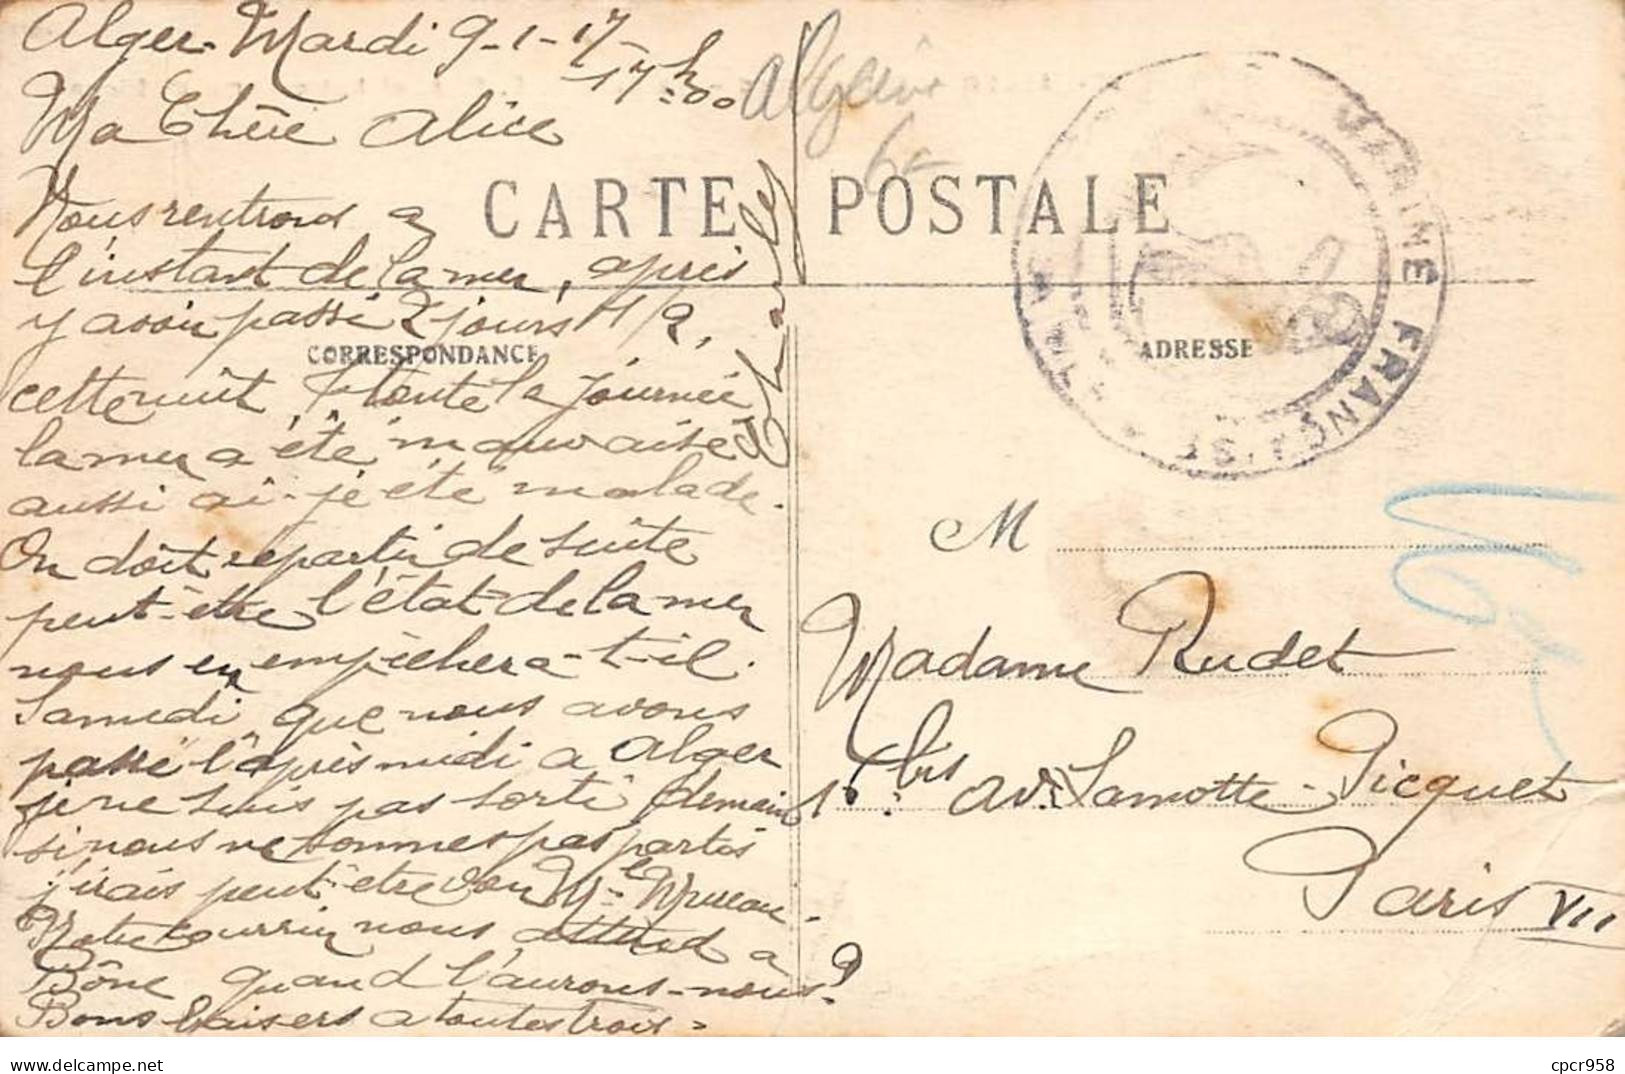 Alger. Mardi 9-1-17
17h00
Ma Chère Alice
Nous rentrons a
l'instant de la mer, après
y avoir passé 2 jours 1/2,
cette nuit & toute la journée
la mer a été mauvaise
aussi ai-je été malade.
On doit repartir de suite
peut-être l'état de la mer
nous en empêchera-t-il.
Samedi que nous avons
passé l'après midi a Alger
je ne suis pas sorti, demain
si nous ne sommes pas partis
j'irais peut-être voir
Notre courrier nous attend a
Bône quand l'aurons-nous?
Bons baisers a toutes trois
Charley
Algérie
6-
CARTE POSTALE
CORRESPONDANCE
ADRESSE
MARINE FRANÇAISE
M
Madame Rudet
bis av. Lamotte-Picquet
Paris VII
cpcr958